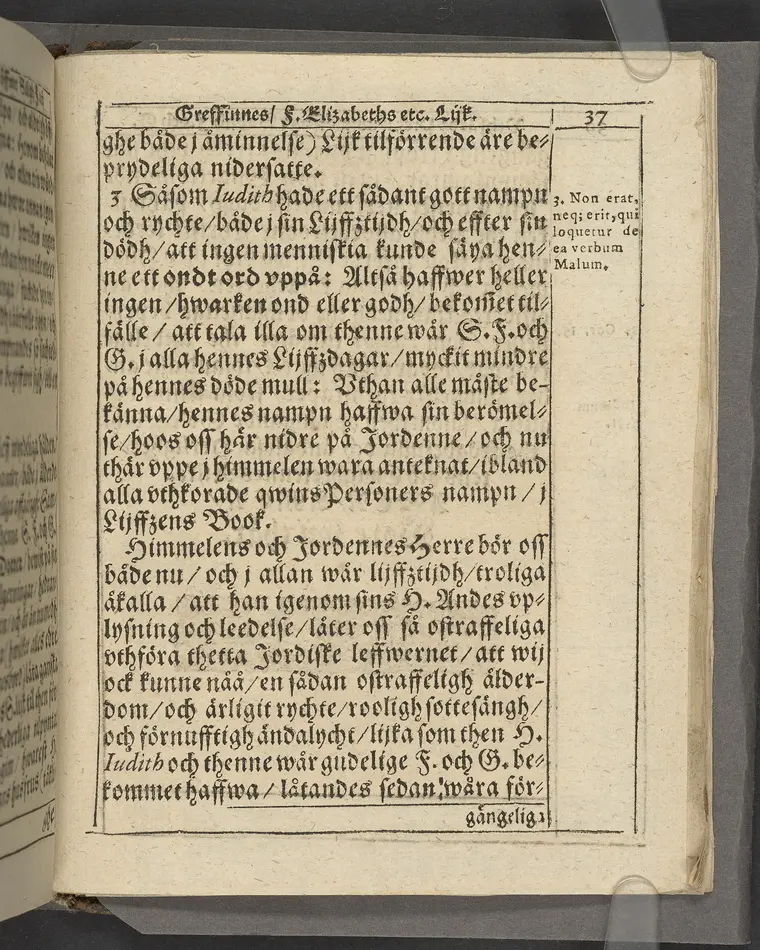 Greffinnes/ F. Elizabeths etc. Lijk.
37
ghe både j åminnelse) Lijk tilförrende äre be-
prydeliga nidersatte.
3 Såsom Iudith hade ett sådant gott nampn
och rychte/både j sin Lijffztijdh/och effter sin
dödh/att ingen menniskia kunde säya hen-
ne ett ondt ord vppå: Altså haffwer heller
ingen/hwarken ond eller godh/bekom̃et til-
fälle/att tala illa om thenne wår S. F. och
G. j alla hennes Lijffzdagar/myckit mindre
på hennes döde mull: Vthan alle måste be-
känna/hennes nampn haffwa sin berömel-
se/hoos oss här nidre på Jordenne/och nu
thär vppe j himmelen wara anteknat/ibland
alla vthkorade qwins Personers nampn/j
Lijffzens Book.
Himmelens och Jordennes Herre bör oss
både nu/och j allan wår lijffztijdh/troliga
åkalla/att han igenom sins H. Andes vp-
lysning och leedelse/låter oss så ostraffeliga
vthföra thetta Jordiske leffwernet/att wij
ock kunne nåå/en sådan ostraffeligh ålder-
dom/och ärligit rychte/rooligh sottesängh/
och förnufftigh ändalycht/lijka som then H.
Iudith och thenne wår gudelige F. och G. be-
kommet haffwa/låtandes sedan wåra för-
gängelig
3. Non erat,
neq; erit, qui
loquetur de
ea verbum
Malum.